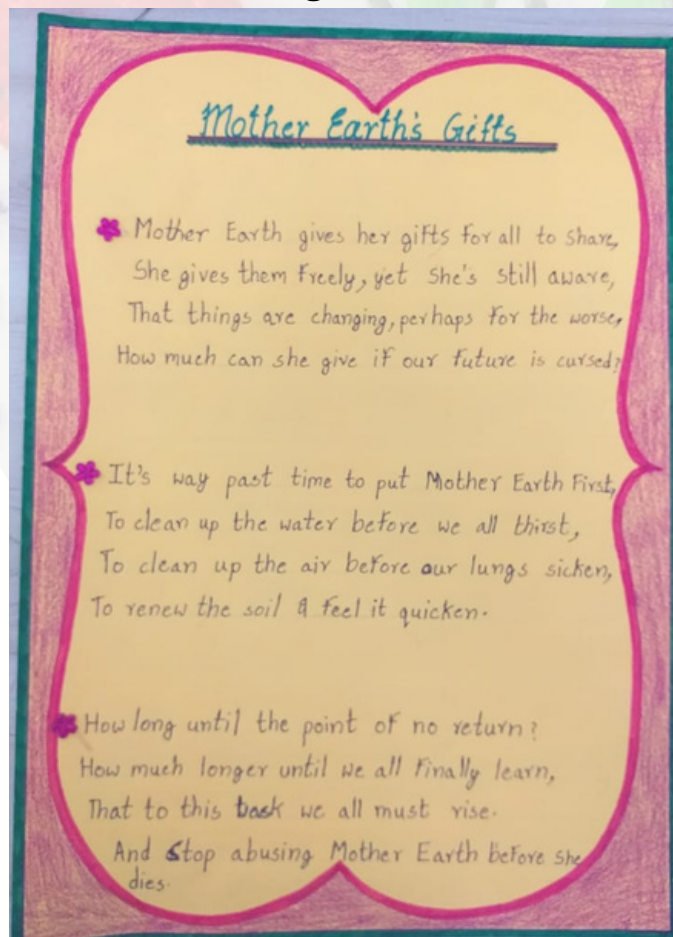 Mother Earth's Gifts
Mother Earth gives her gifts for all to share,
She gives them freely, yet she's still aware,
That things are changing, perhaps for the worse,
How much can she give if our future is cursed?
It's way past time to put Mother Earth First,
To clean up the water before we all thirst,
To clean up the air before our lungs sicken,
To renew the soil & feel it quicken.
How long until the point of no return?
How much longer until we all finally learn,
That to this task we all must rise.
And Stop abusing Mother Earth before she
dies.